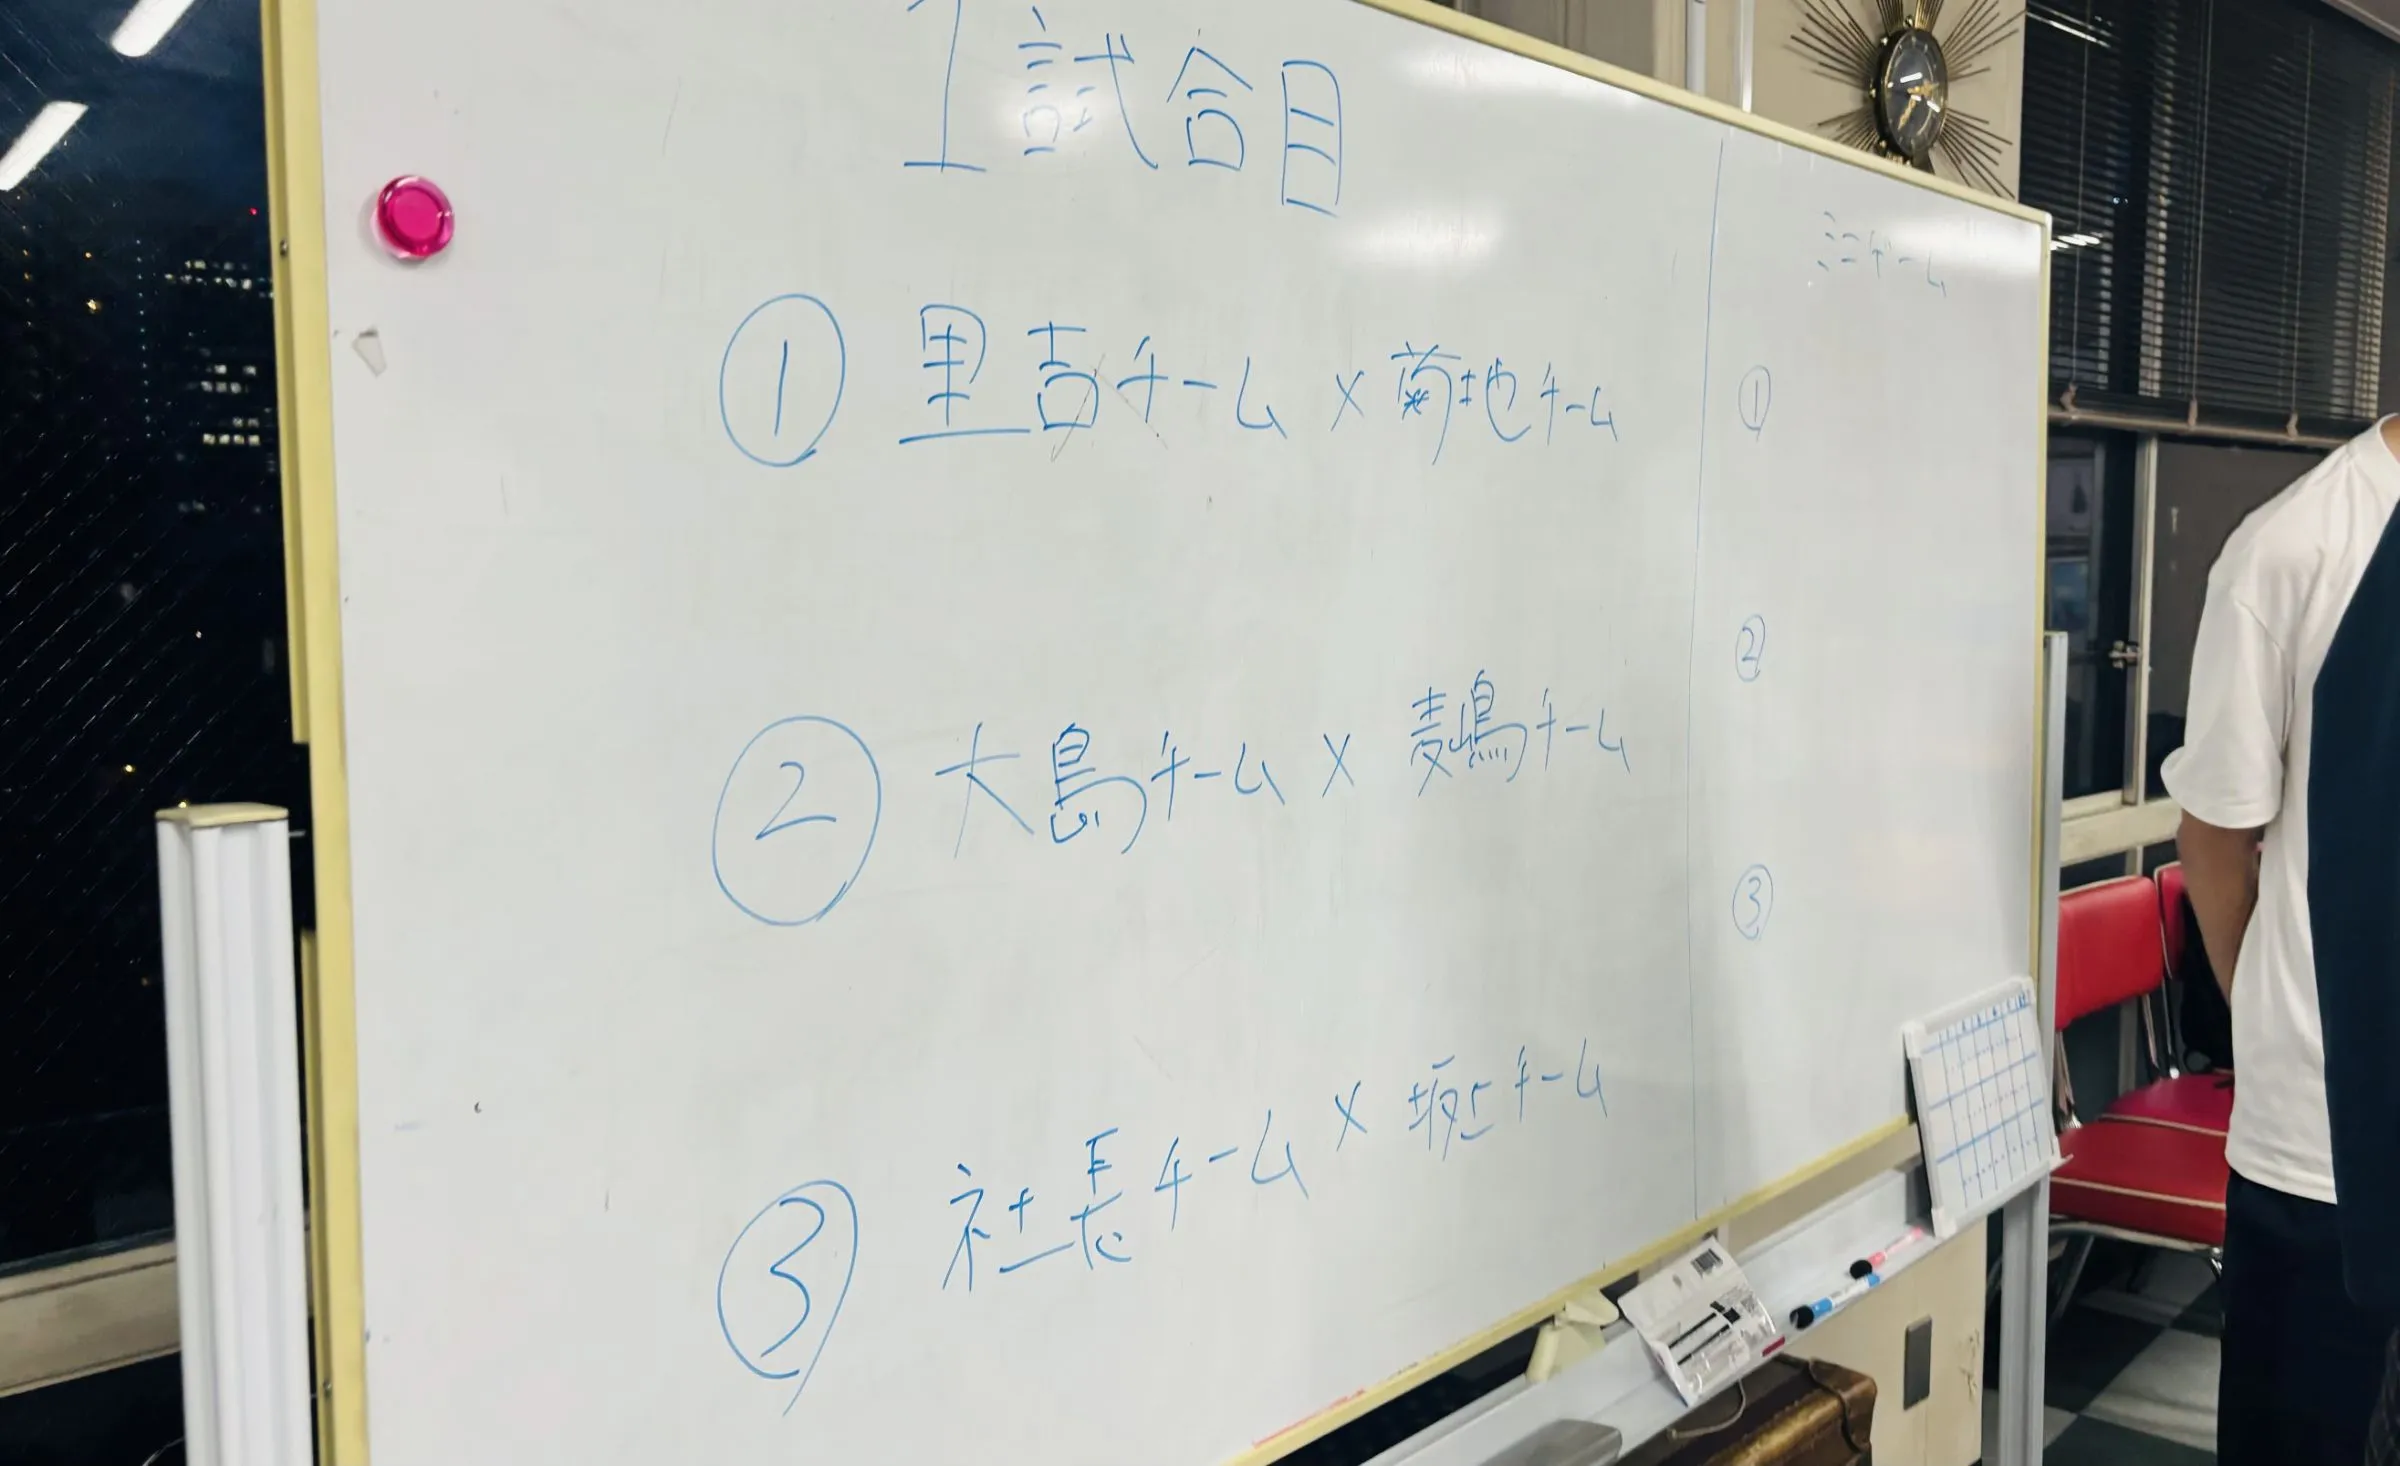 1試合目
① 里吉チーム × 菊地チーム
②大島チーム × 麦嶋チーム
③ 社長チーム × 堀上チーム
ミニゲーム
①
②
③